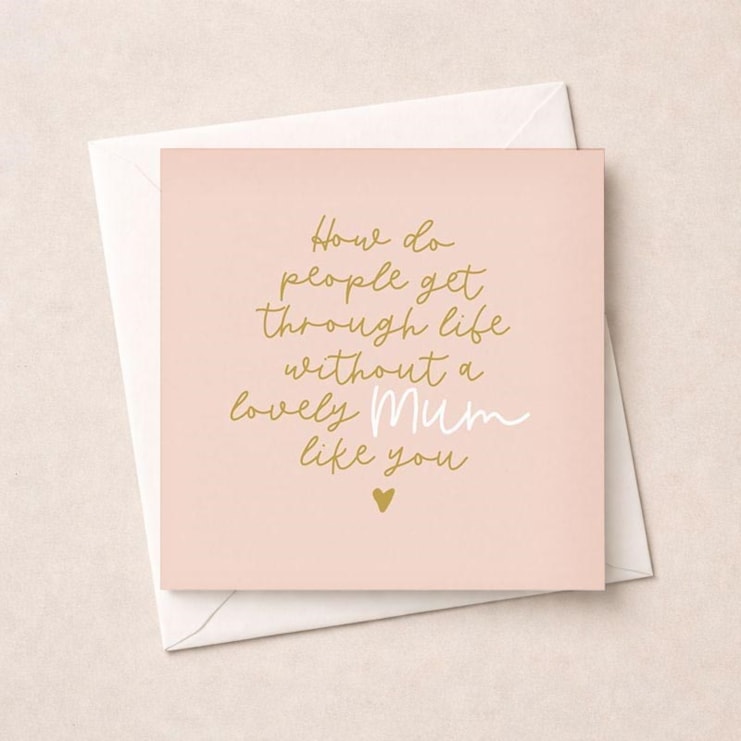 How do
people get
through life
without a
lovely Mum
like you